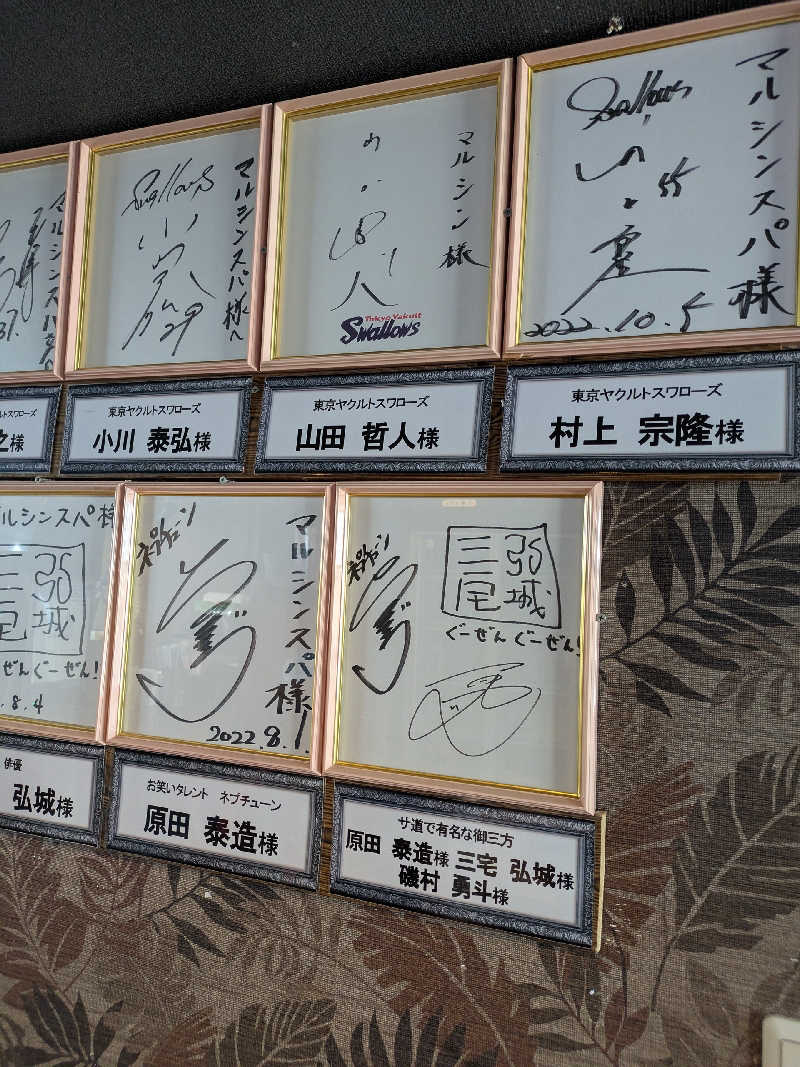 マルシンスパさんへ
37.
スワローズ
之様
Swallows
マルシンスパ様へ
29
東京ヤクルトスワローズ
小川 泰弘様
マルシン様
Tokyo Yakult
Swallows
東京ヤクルトスワローズ
山田 哲人様
Swallows
マルシンスパ様
55
2022.10.5
東京ヤクルトスワローズ
村上 宗隆様
マルシンスパ様
三宅
弘城
ぜんぐーぜん!
.8.4
俳優
弘城様
マルシンスパ様
ネプチューン
2022.8.1.
お笑いタレント ネプチューン
原田 泰造様
ネプチューン
三宅
弘城
ぐーぜんぐーぜん!
サ道で有名な御三方
原田 泰造様 三宅 弘城様
磯村 勇斗様